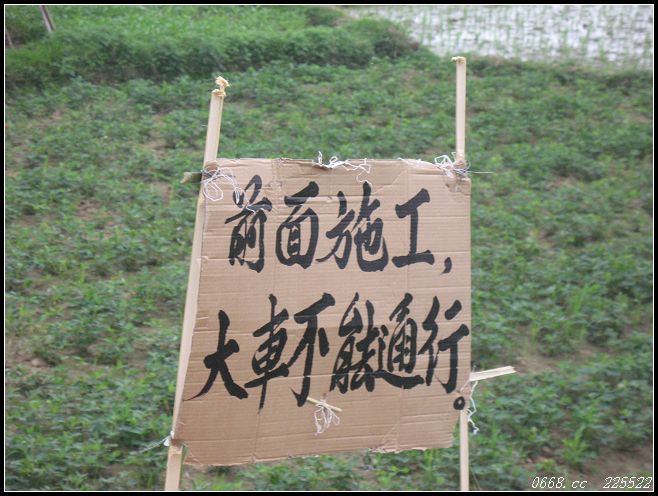 前面施工，
大車不能通行。
0668.cc 225522